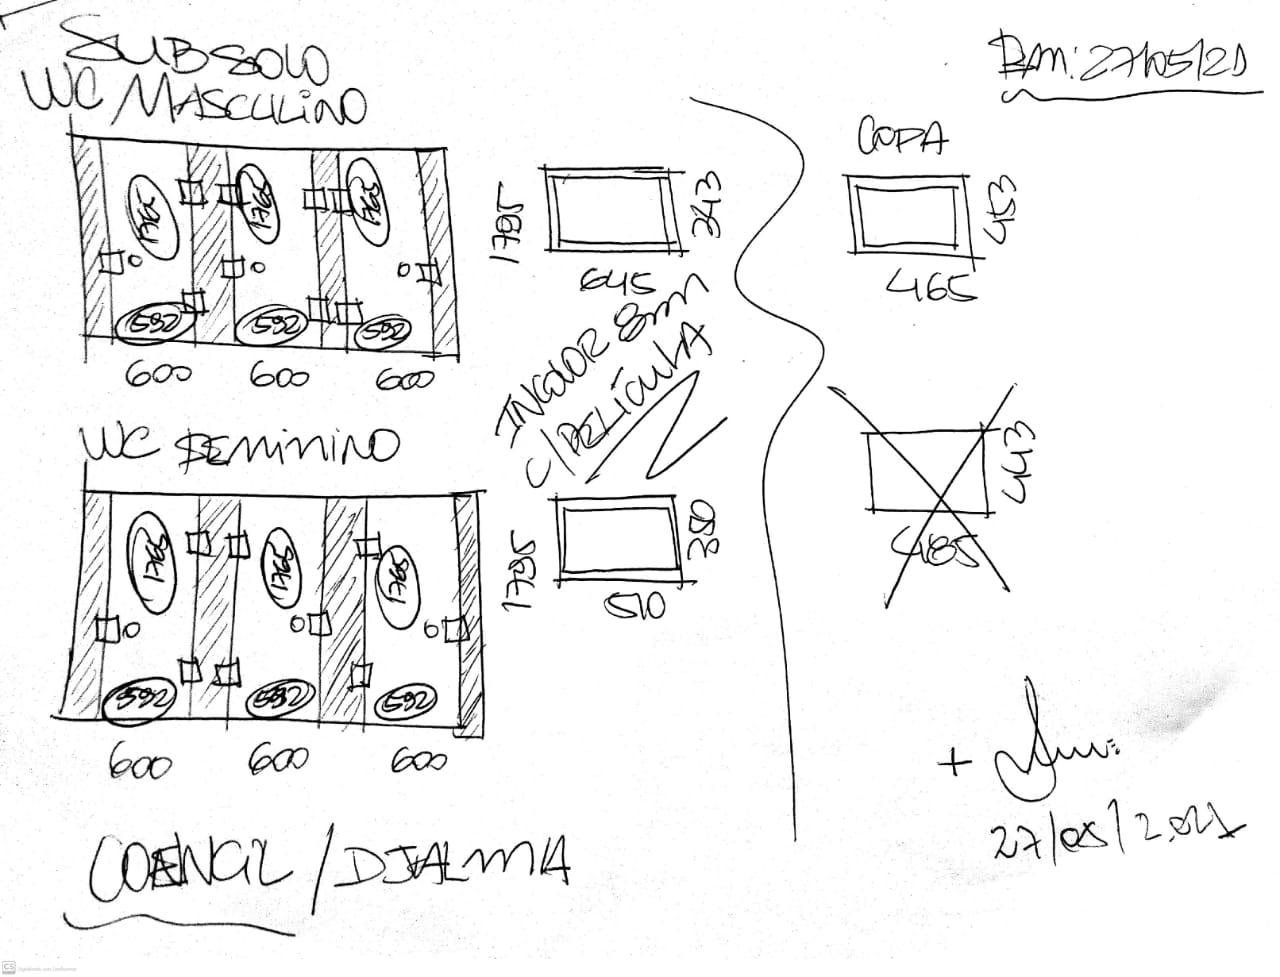 SUBSOLO
WC MASCULINO
1765 1765 1765
592 592 592
600 600 600
1795 343
645
INCOLOR 8mm
C/ PELÍCULA
WC FEMININO
1765 1765 1765
592 592 592
600 600 600
1795 380
510
COENGIL / DJALMA
27/05/21
COPA
453
465
443
485
+
27/05/2.021
CS Digitalizado com CamScanner